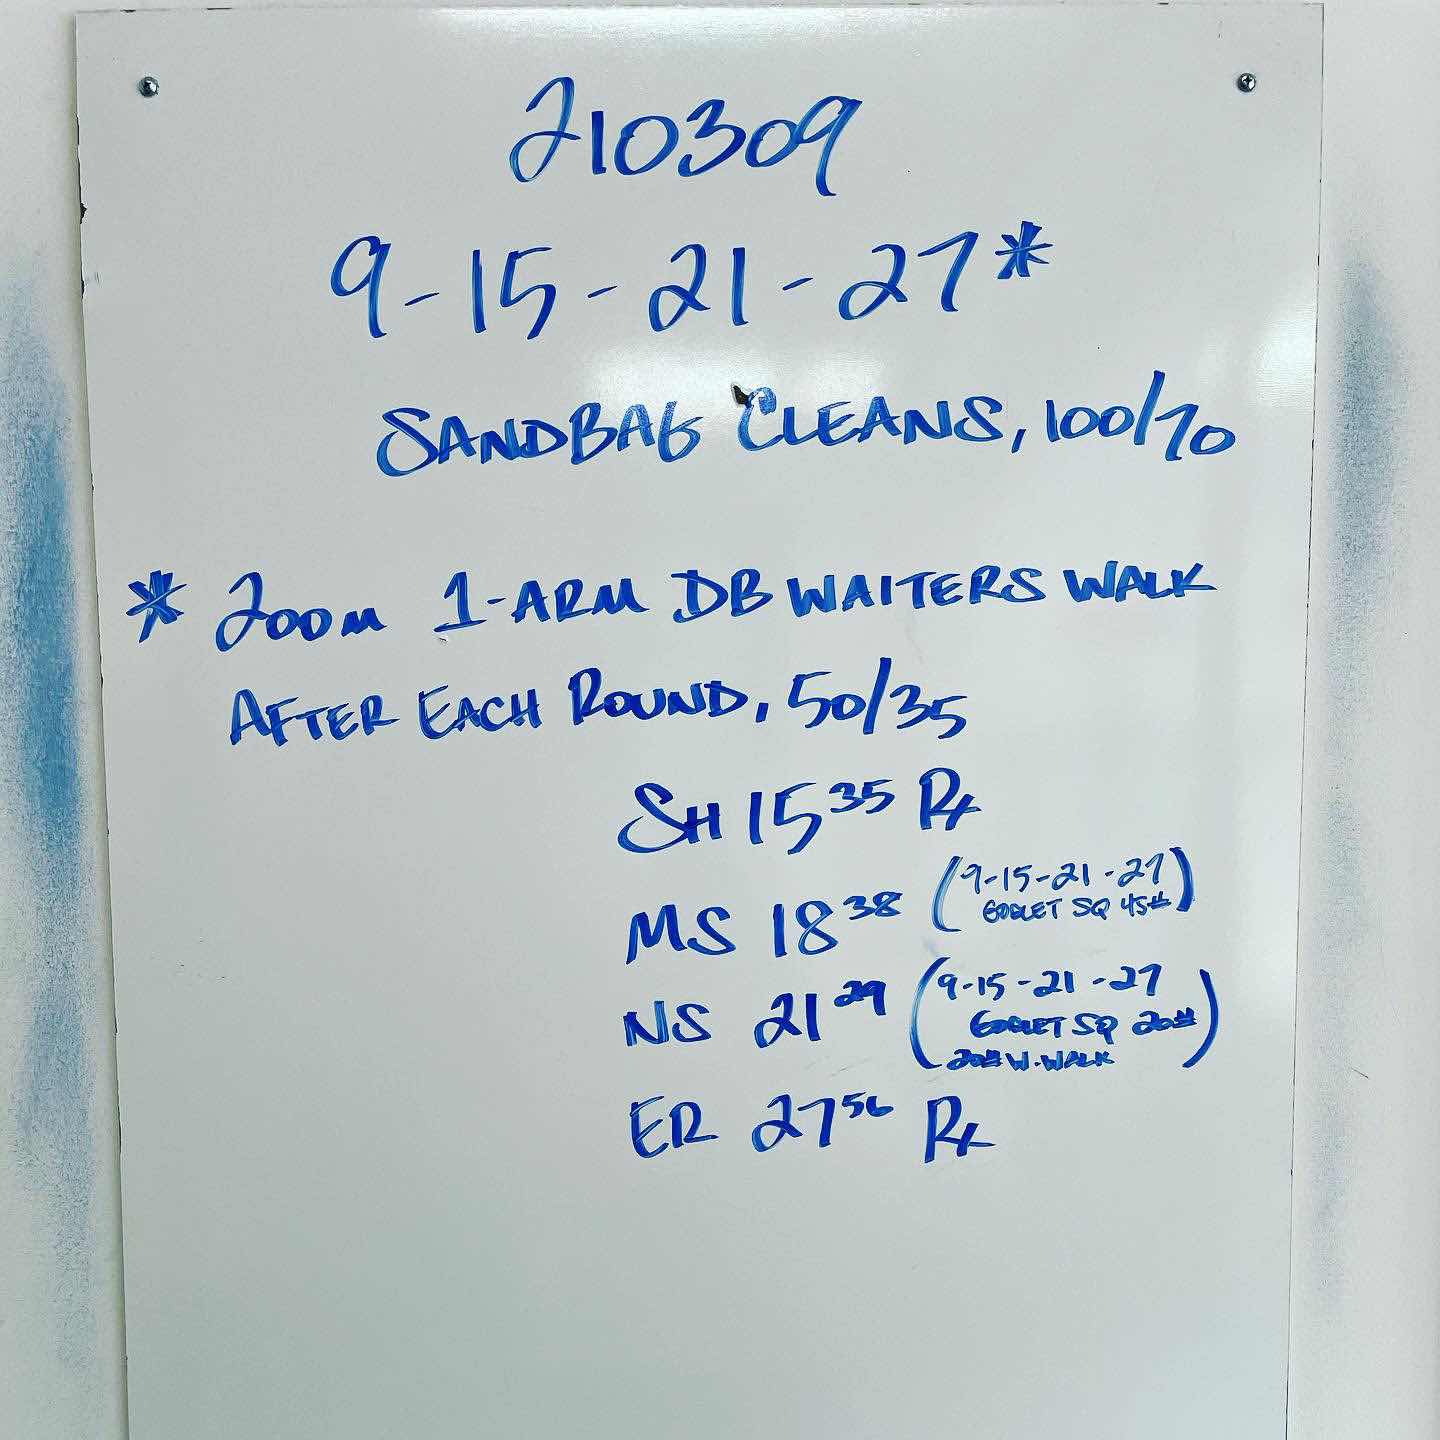 210309
9-15-21-27*
SANDBAG CLEANS, 100/70
* 200m 1-ARM DB WAITERS WALK
AFTER EACH ROUND, 50/35
SH 15 35 Rx
MS 18 38 (9-15-21-27
GOBLET SQ 45#)
NS 21 29 (9-15-21-27
GOBLET SQ 20#
20# W. WALK)
ER 27 56 Rx